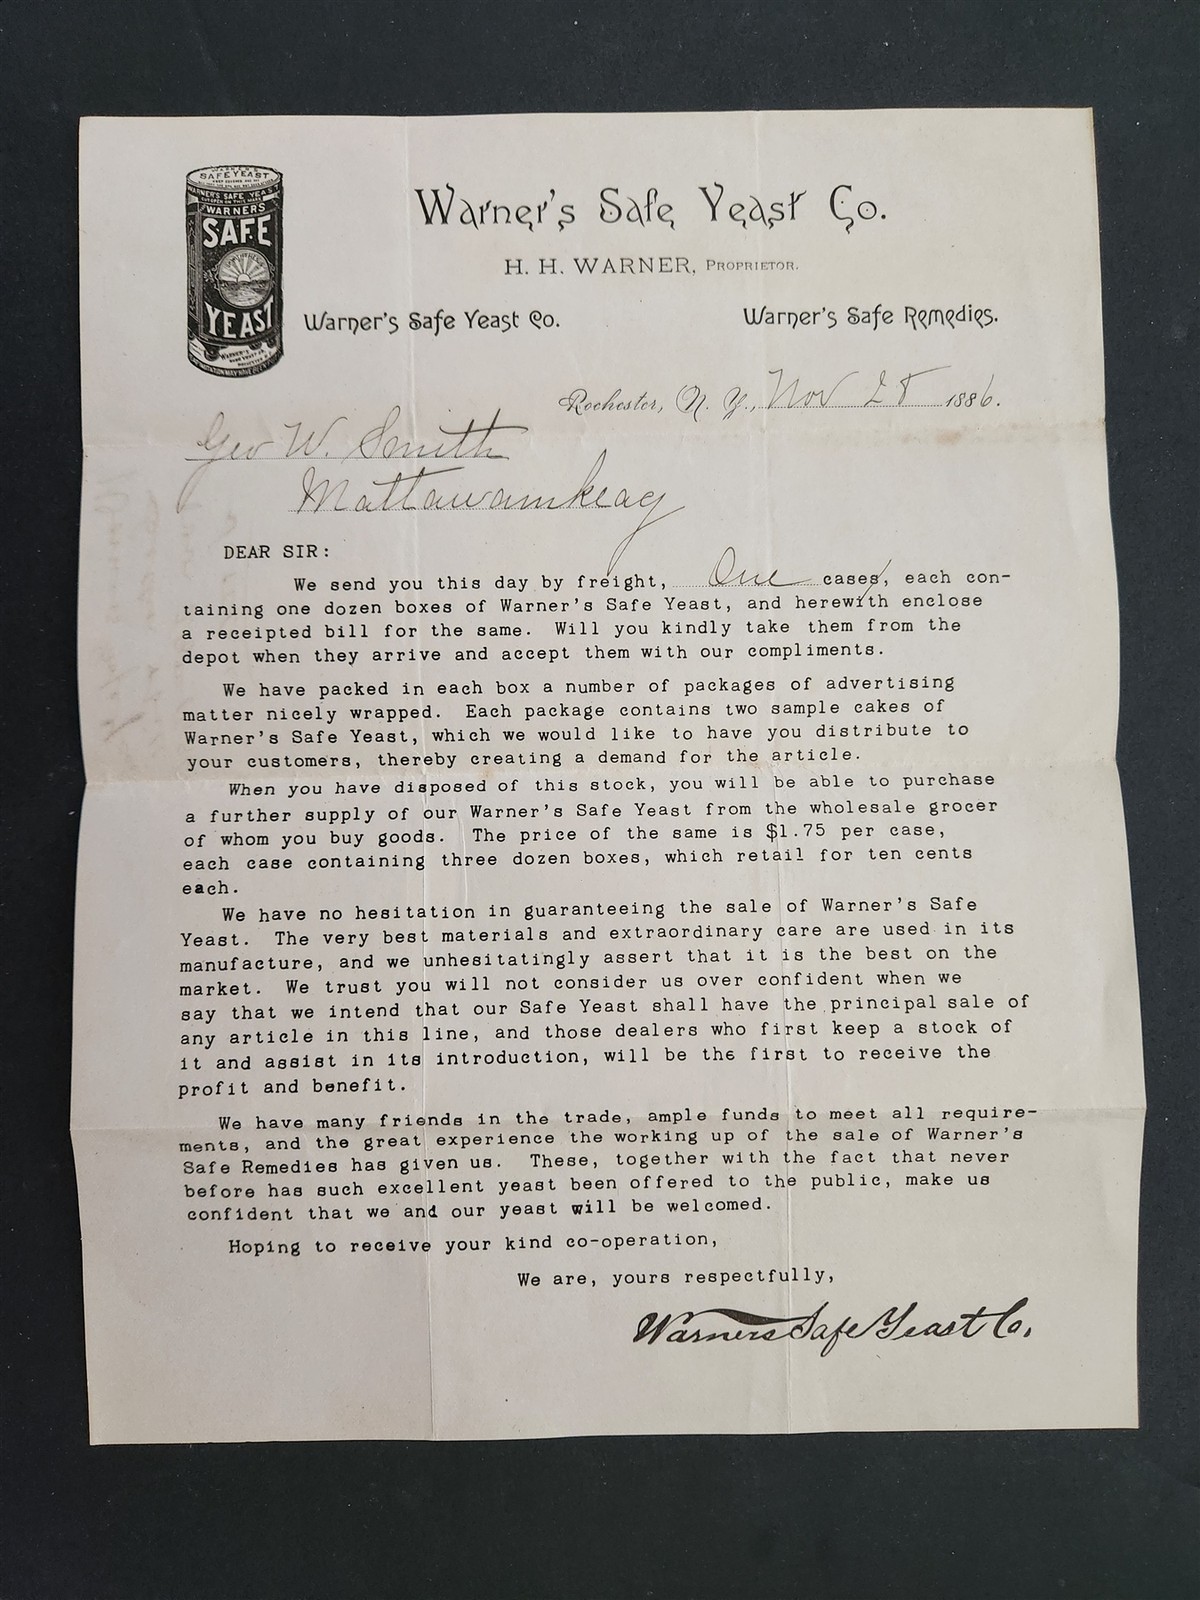 WARNER'S
SAFE YEAST
WARNER'S SAFE YEAST
WARNER'S
SAFE
YEAST
WARNER'S
SAFE YEAST CO.
ROCHESTER N.Y.
Warner's Safe Yeast Co.
H. H. WARNER, PROPRIETOR.
Warner's Safe Yeast Co. Warner's Safe Remedies.
Rochester, N. Y., Nov 28 1886.
Geo W. Smith
Mattawamkeag
DEAR SIR:
We send you this day by freight, One cases, each con-
taining one dozen boxes of Warner's Safe Yeast, and herewith enclose
a receipted bill for the same. Will you kindly take them from the
depot when they arrive and accept them with our compliments.
We have packed in each box a number of packages of advertising
matter nicely wrapped. Each package contains two sample cakes of
Warner's Safe Yeast, which we would like to have you distribute to
your customers, thereby creating a demand for the article.
When you have disposed of this stock, you will be able to purchase
a further supply of our Warner's Safe Yeast from the wholesale grocer
of whom you buy goods. The price of the same is $1.75 per case,
each case containing three dozen boxes, which retail for ten cents
each.
We have no hesitation in guaranteeing the sale of Warner's Safe
Yeast. The very best materials and extraordinary care are used in its
manufacture, and we unhesitatingly assert that it is the best on the
market. We trust you will not consider us over confident when we
say that we intend that our Safe Yeast shall have the principal sale of
any article in this line, and those dealers who first keep a stock of
it and assist in its introduction, will be the first to receive the
profit and benefit.
We have many friends in the trade, ample funds to meet all require-
ments, and the great experience the working up of the sale of Warner's
Safe Remedies has given us. These, together with the fact that never
before has such excellent yeast been offered to the public, make us
confident that we and our yeast will be welcomed.
Hoping to receive your kind co-operation,
We are, yours respectfully,
Warners Safe Yeast Co.